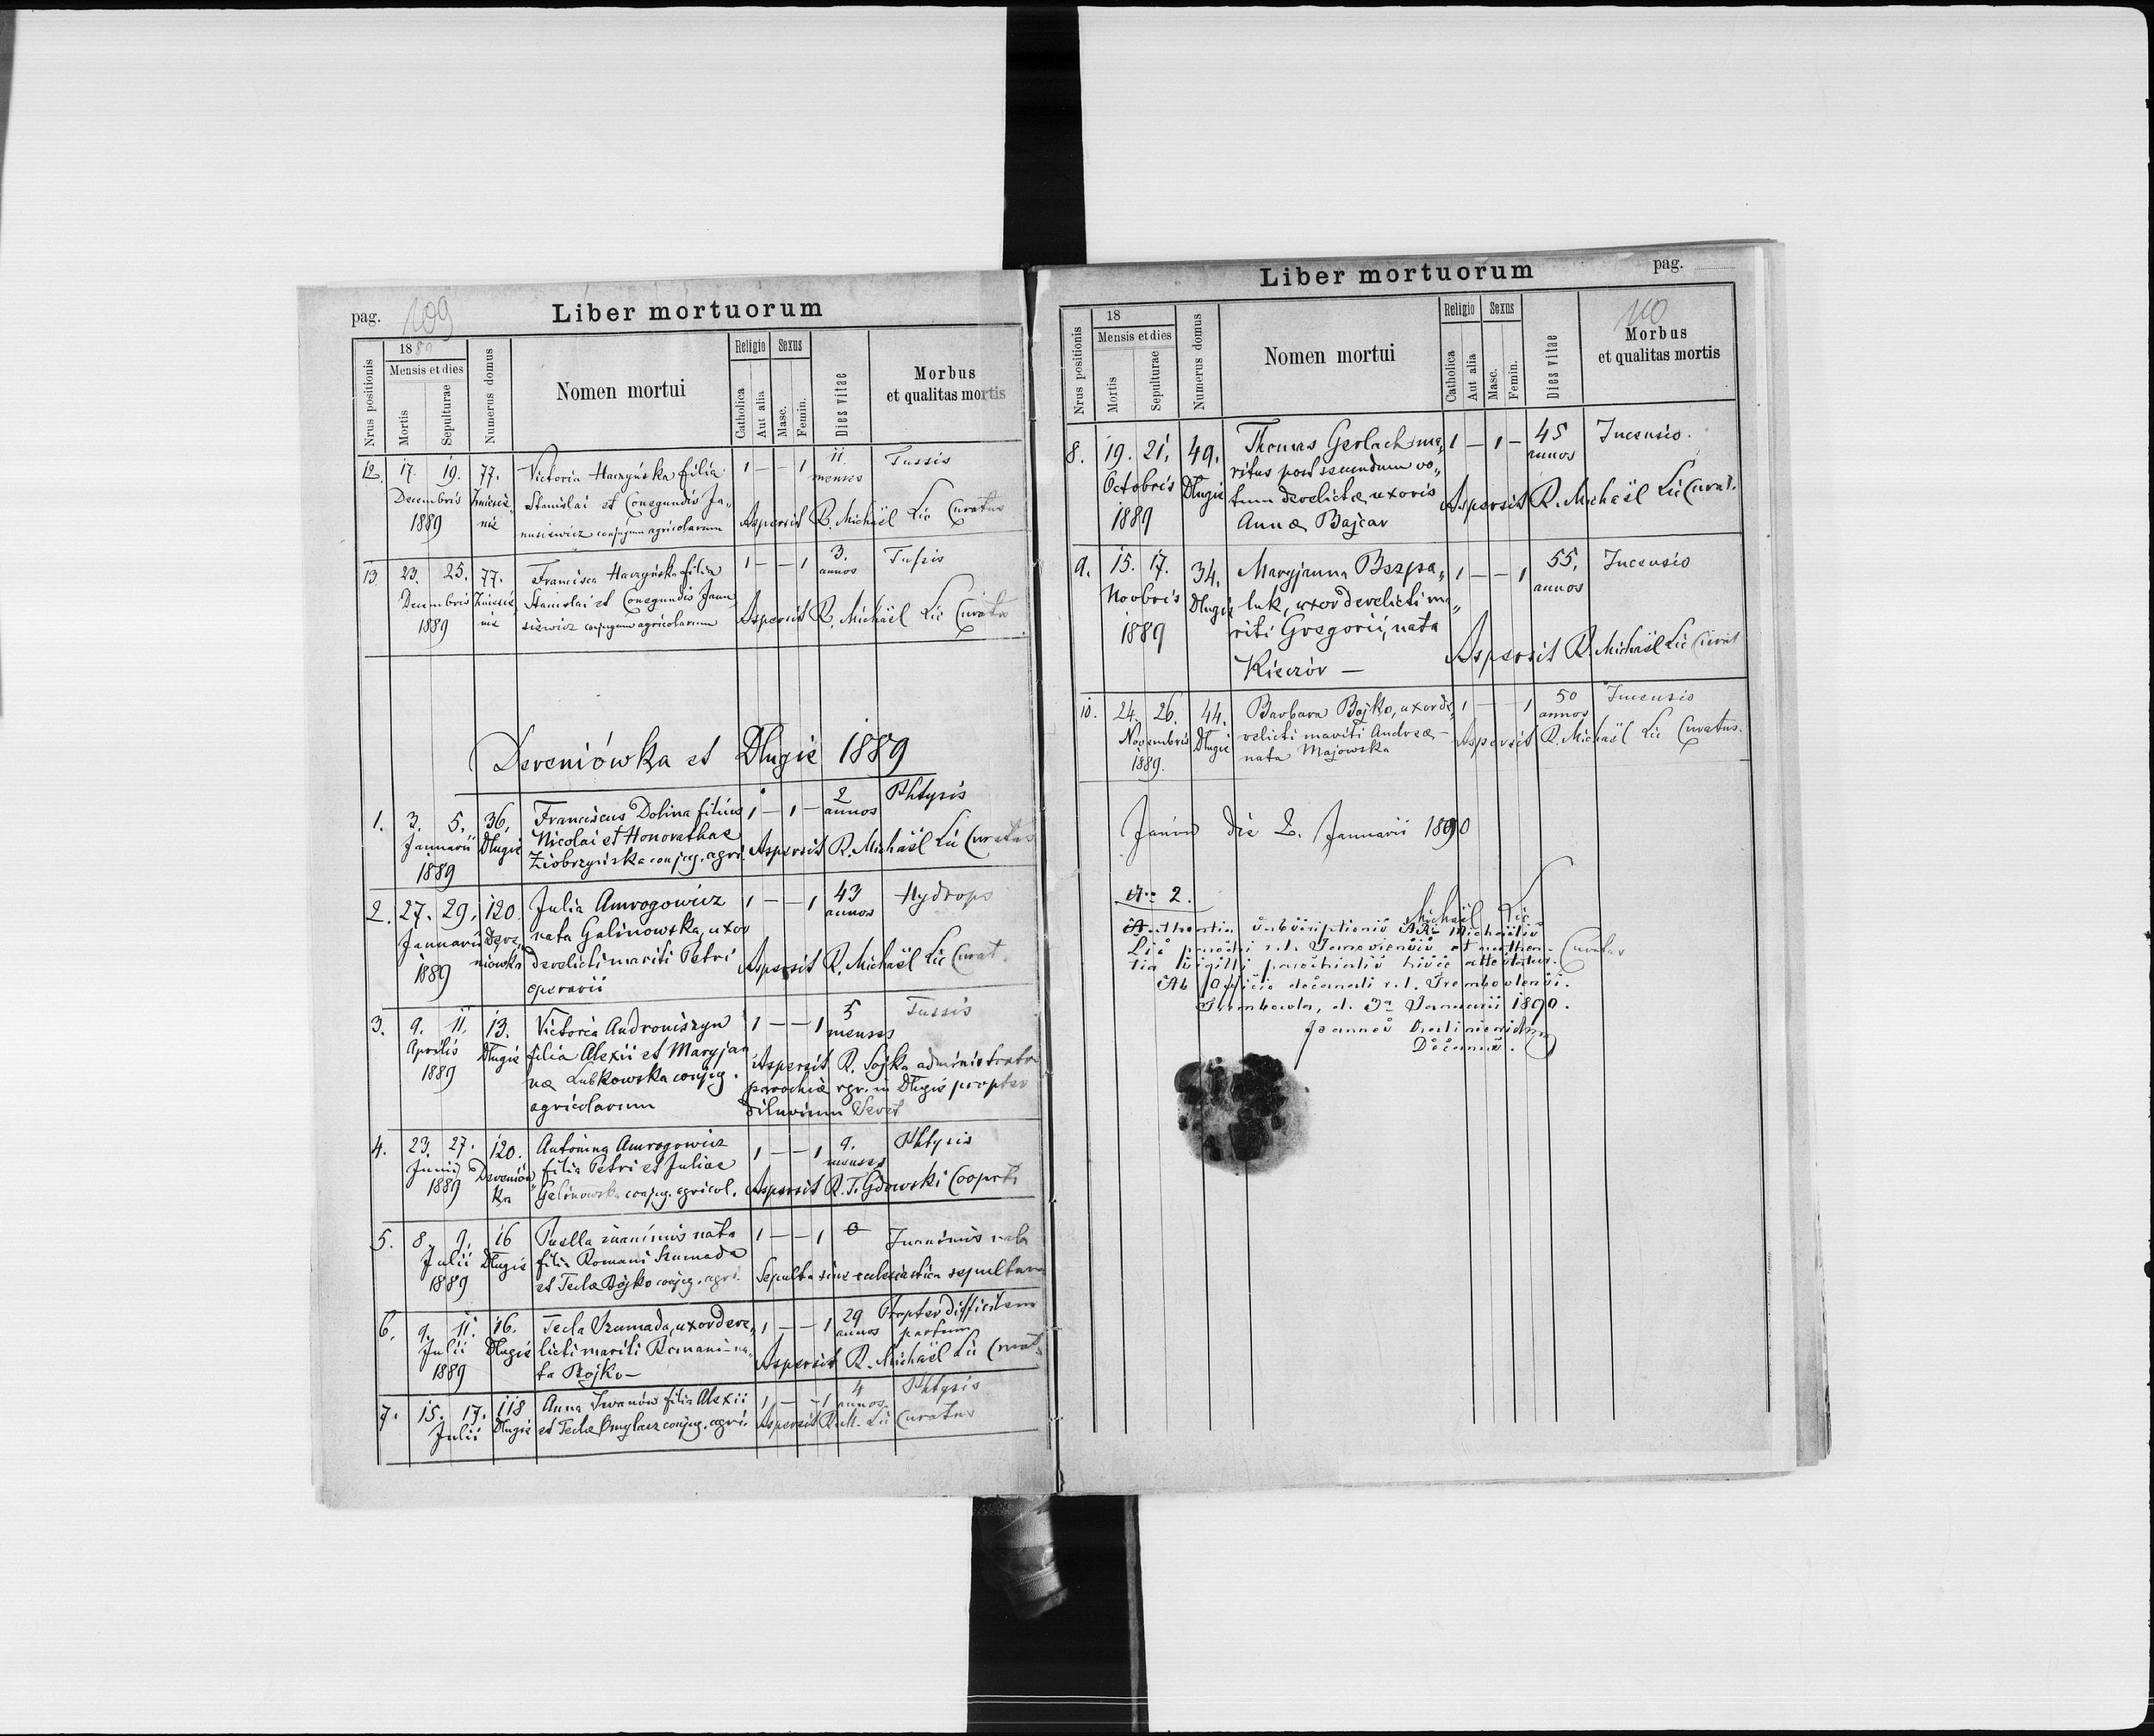 pag. 109
Liber mortuorum
Nrus positionis
1889
Mensis et dies
Mortis
Sepulturae
Numerus domus
Nomen mortui
Religio
Catholica
Aut alia
Sexus
Masc.
Femin.
Dies vitae
Morbus
et qualitas mortis
12. 17. 19. 77. Victoria Haczyńska filia 1 — — 1 11 menses Tussis
Decembris Stanislai et Conegundis Ja„
1889 nusiewicz conjugum agricolarum Aspersit R. Michaël Lic Curatus
13 23. 25. 77. Francisca Haczyńska filia 1 — — 1 3. annos Tussis
Decembris Stanislai et Conegundis Janu„
1889 siewicz conjugum agricolarum Aspersit R. Michaël Lic Curatus
Dereniówka et Długie 1889
1. 3. 5. 36. Franciscus Dolina filius 1 — 1 — 2 annos Phtysis
Januarii Długie Nicolai et Honorathae
1889 Ziobrzyńska conjug. agri. Aspersit R. Michaël Lic Curatus
2. 27. 29. 120. Julia Amrogowicz 1 — — 1 43 annos Hydrops
Januarii Dere„ nata Galinowska, uxor
1889 niówka derelicti mariti Petri Aspersit R. Michaël Lic Curat.
operarii
3. 9. 11. 13. Victoria Androniszyn 1 — — 1 5 menses Tussis
Aprilis Długie filia Alexii et Maryjan
1889 næ Lubkowska conjug. Aspersit R. Sojka administrator
agricolarum parochiæ rgr. in Długie propter
diluvium Seret
4. 23. 27. 120. Antonina Amrogowicz 1 — — 1 9. menses Phtysis
Junii Dereniów„ filia Petri et Juliae
1889 ka Galinowska conjug. agricol. Aspersit R. T. Gdowski Cooprt.
5. 8. 9. 16 Puella inanimis nata 1 — — 1 0 Inanimis nata
Julii Długie filia Romani Szumada
1889 et Teclæ Bojko conjug. agri. Sepulta sine ecclesiastica sepultura
6. 9. 11. 16. Tecla Szumada, uxor dere„ 1 — — 1 29 annos Propter difficilem partum
Julii Długie licti mariti Romani — na„
1889 ta Bojko — Aspersit R. Michaël Lic Curat.
7. 15. 17. 118 Anna Iwanów filia Alexii 1 — — 1 4 annos Phtysis
Julii Długie et Teclæ conjug. agri. Aspersit R. M. Lic Curatus
Liber mortuorum
pag.
110
Nrus positionis
18
Mensis et dies
Mortis
Sepulturae
Numerus domus
Nomen mortui
Religio
Catholica
Aut alia
Sexus
Masc.
Femin.
Dies vitae
Morbus
et qualitas mortis
8. 19. 21. 49. Thomas Gerlach ma„ 1 — 1 — 45 annos Incensio.
Octobris Długie ritus post secundum vo„
1889 tum derelictæ uxoris Aspersit R. Michaël Lic Curat.
Annæ Bajcar
9. 15. 17. 34. Maryjanna Bszpa„ 1 — — 1 55. annos Incensio
Novbris Długie luk, uxor derelicti ma„
1889 riti Gregorii, nata Aspersit R. Michaël Lic Curat
Kiczór —
10. 24. 26. 44. Barbara Bojko, uxor de„ 1 — — 1 50 annos Incensio
Novembris Długie relicti mariti Andreæ —
1889. nata Majowska Aspersit R. Michaël Lic Curatus.
Janów die 2. Januarii 1890
Michaël Lic
Curatus
N: 2.
Authentia subscriptionis ARi Michaëlis
Lic parochi r.l. Janoviensis et authen-
tia sigilli parochialis hisce attestatur.
Ab Officio decanali r.l. Trembovlensi.
Trembowla, d. 3a Januarii 1890.
Joannes
Decanus.